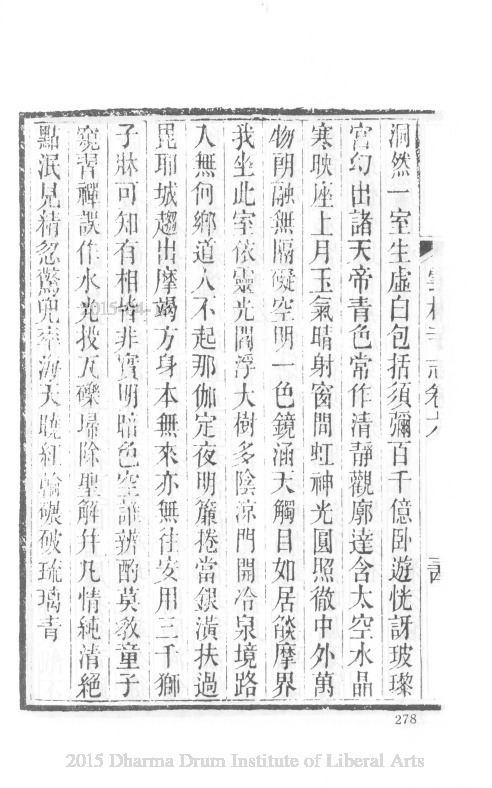 洞然一室生虛白包括須彌百千億卧遊恍訝玻瓈
宮幻出諸天帝青色常作清靜觀廓達含太空水晶
寒映座上月玉氣晴射窗間虹神光圓照徹中外萬
物朗融無隔礙空明一色鏡涵天觸目如居燄摩界
我坐此室依靈光閻浮大樹多陰涼門開冷泉境路
入無何鄉道人不起那伽定夜明簾捲當銀潢扶過
毘耶城趨出摩竭方身本無來亦無往安用三千獅
子牀可知有相皆非實明暗色空誰辨酌莫教童子
窺習禪誤作水光投瓦礫掃除聖解并凡情純清絕
點泯見精忽驚兜率海天曉紅輪碾破琉璃青
志卷八
278
2015 Dharma Drum Institute of Liberal Arts